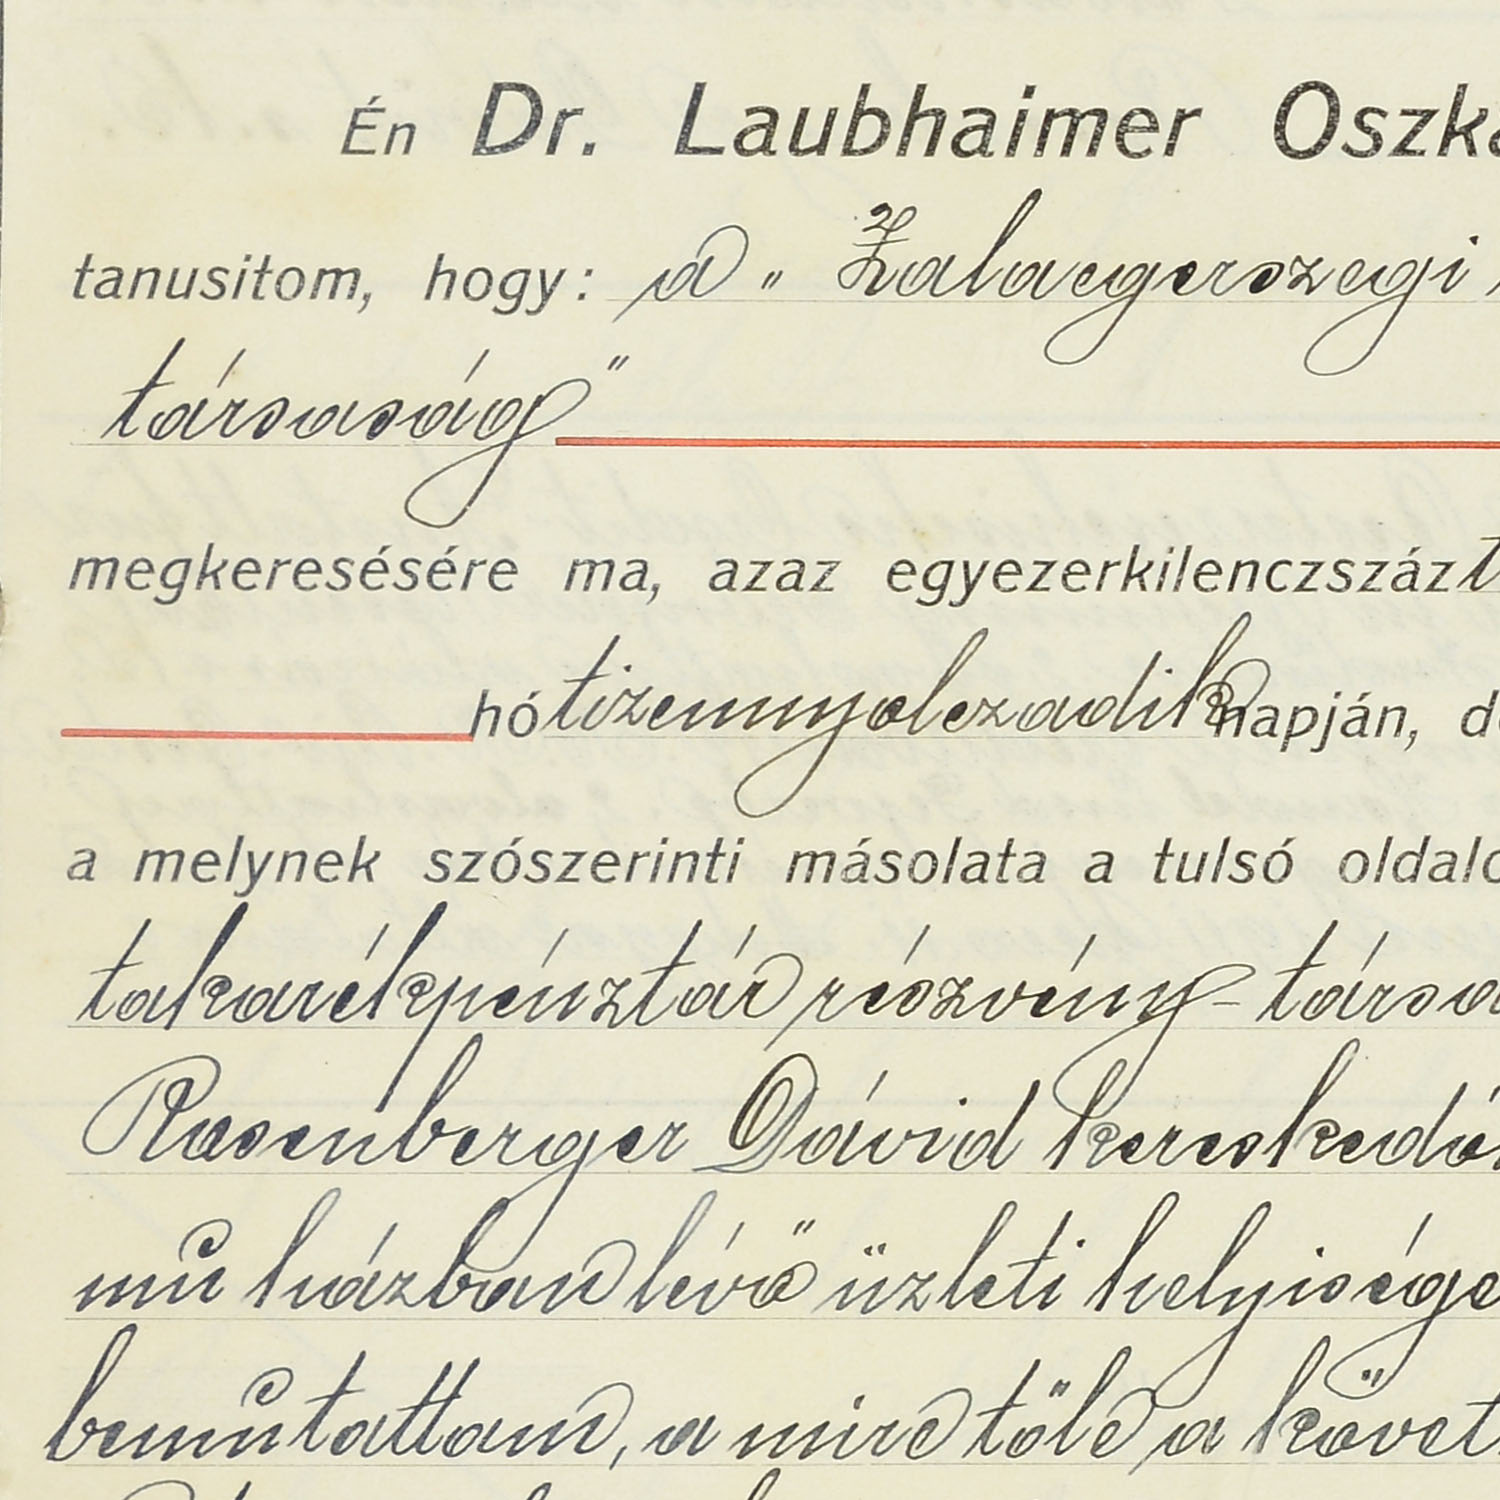 Én Dr. Laubhaimer Oszká
tanusitom, hogy: a „Zalaegerszegi
társaság"
megkeresésére ma, azaz egyezerkilenczszáz t
hó tizennyolczadik napján, d
a melynek szószerinti másolata a tulsó oldalo
takarékpénztár részvény-társa
Rosenberger Dávid kereskedő
mu házban lévő üzleti helyisége
bemutattam, a mire tőle a követ